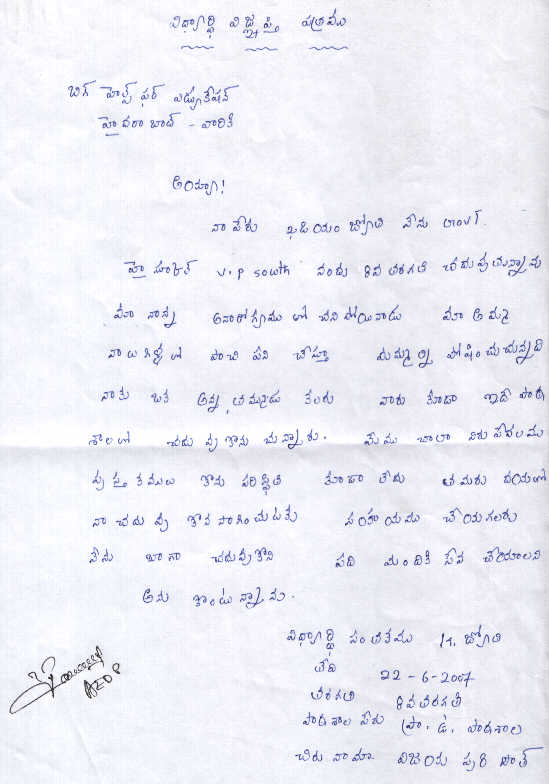 విధ్యార్థి విజ్ఞప్తి పత్రము
బిగ్ హెల్ప్ ఫర్ ఎడ్యుకేషన్
హైదరాబాద్ - వారికి
అయ్యా!
నా పేరు ఖడియం జ్యోతి నేను Govt.
హై స్కూల్ v.p south నందు 8వ తరగతి చదువుతున్నాను
మా నాన్న అనారోగ్యముతో చనిపోయినాడు మా అమ్మ
నాలుగిళ్ళలో పాచి పని చేస్తూ మమ్మల్ని పోషించుచున్నది
నాకు ఒక అన్న, తమ్ముడు కలరు వారు కూడా ఇదే పాఠ
శాలలో చదువుకొనుచున్నారు. మేము చాలా నిరుపేదలము
పుస్తకములు కొను పరిస్థితి కూడా లేదు తమరు దయతో
నా చదువు కొనసాగించుటకు సహాయము చేయగలరు
నేను బాగా చదువుకొని పది మందికి సేవ చేయాలని
అను కొంటున్నాను.
విధ్యార్థి సంతకము K. జ్యోతి
తేది 22-6-2007
తరగతి 8వ తరగతి
పాఠశాల పేరు ప్రా. ఉ. పాఠశాల
చిరునామా విజయ పురి సౌత్